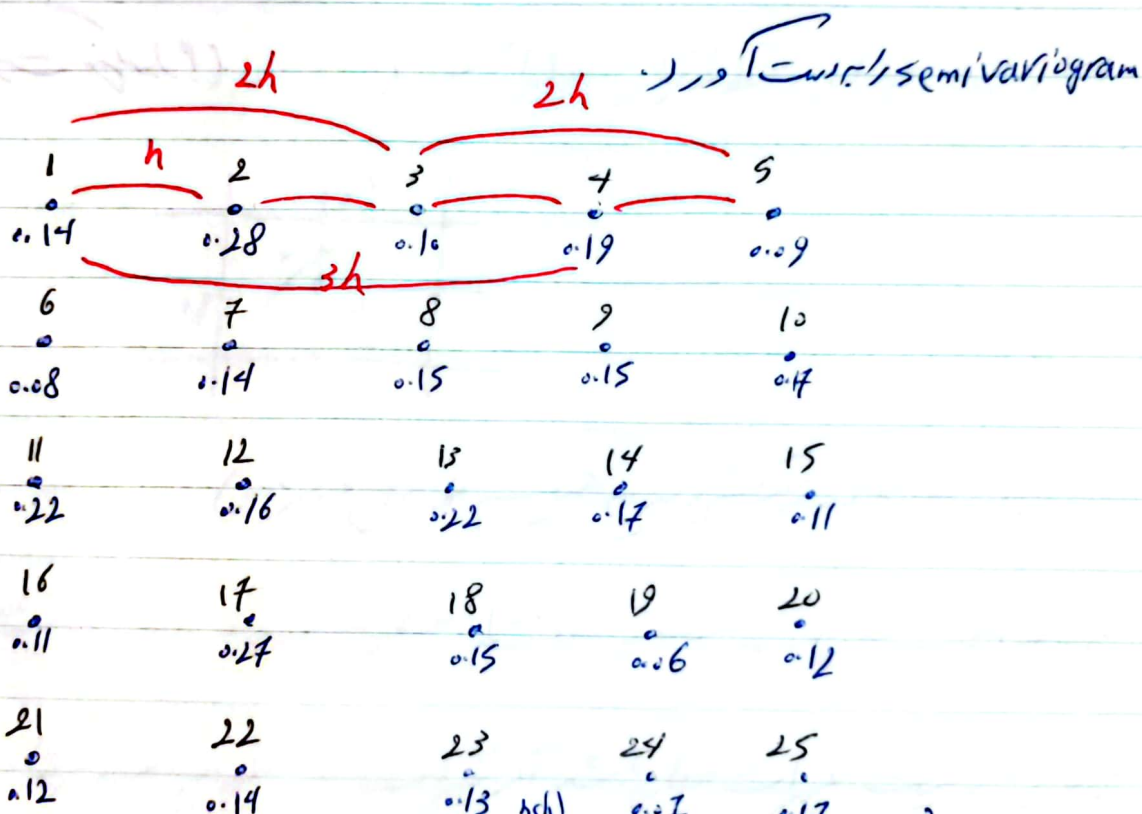 semivariogram را بدست آورد.
2h 2h
1 h 2 3 4 5
0.14 0.28 0.10 0.19 0.09
3h
6 7 8 9 10
0.08 0.14 0.15 0.15 0.17
11 12 13 14 15
0.22 0.16 0.22 0.17 0.11
16 17 18 19 20
0.11 0.27 0.15 0.06 0.12
21 22 23 24 25
0.12 0.14 0.13